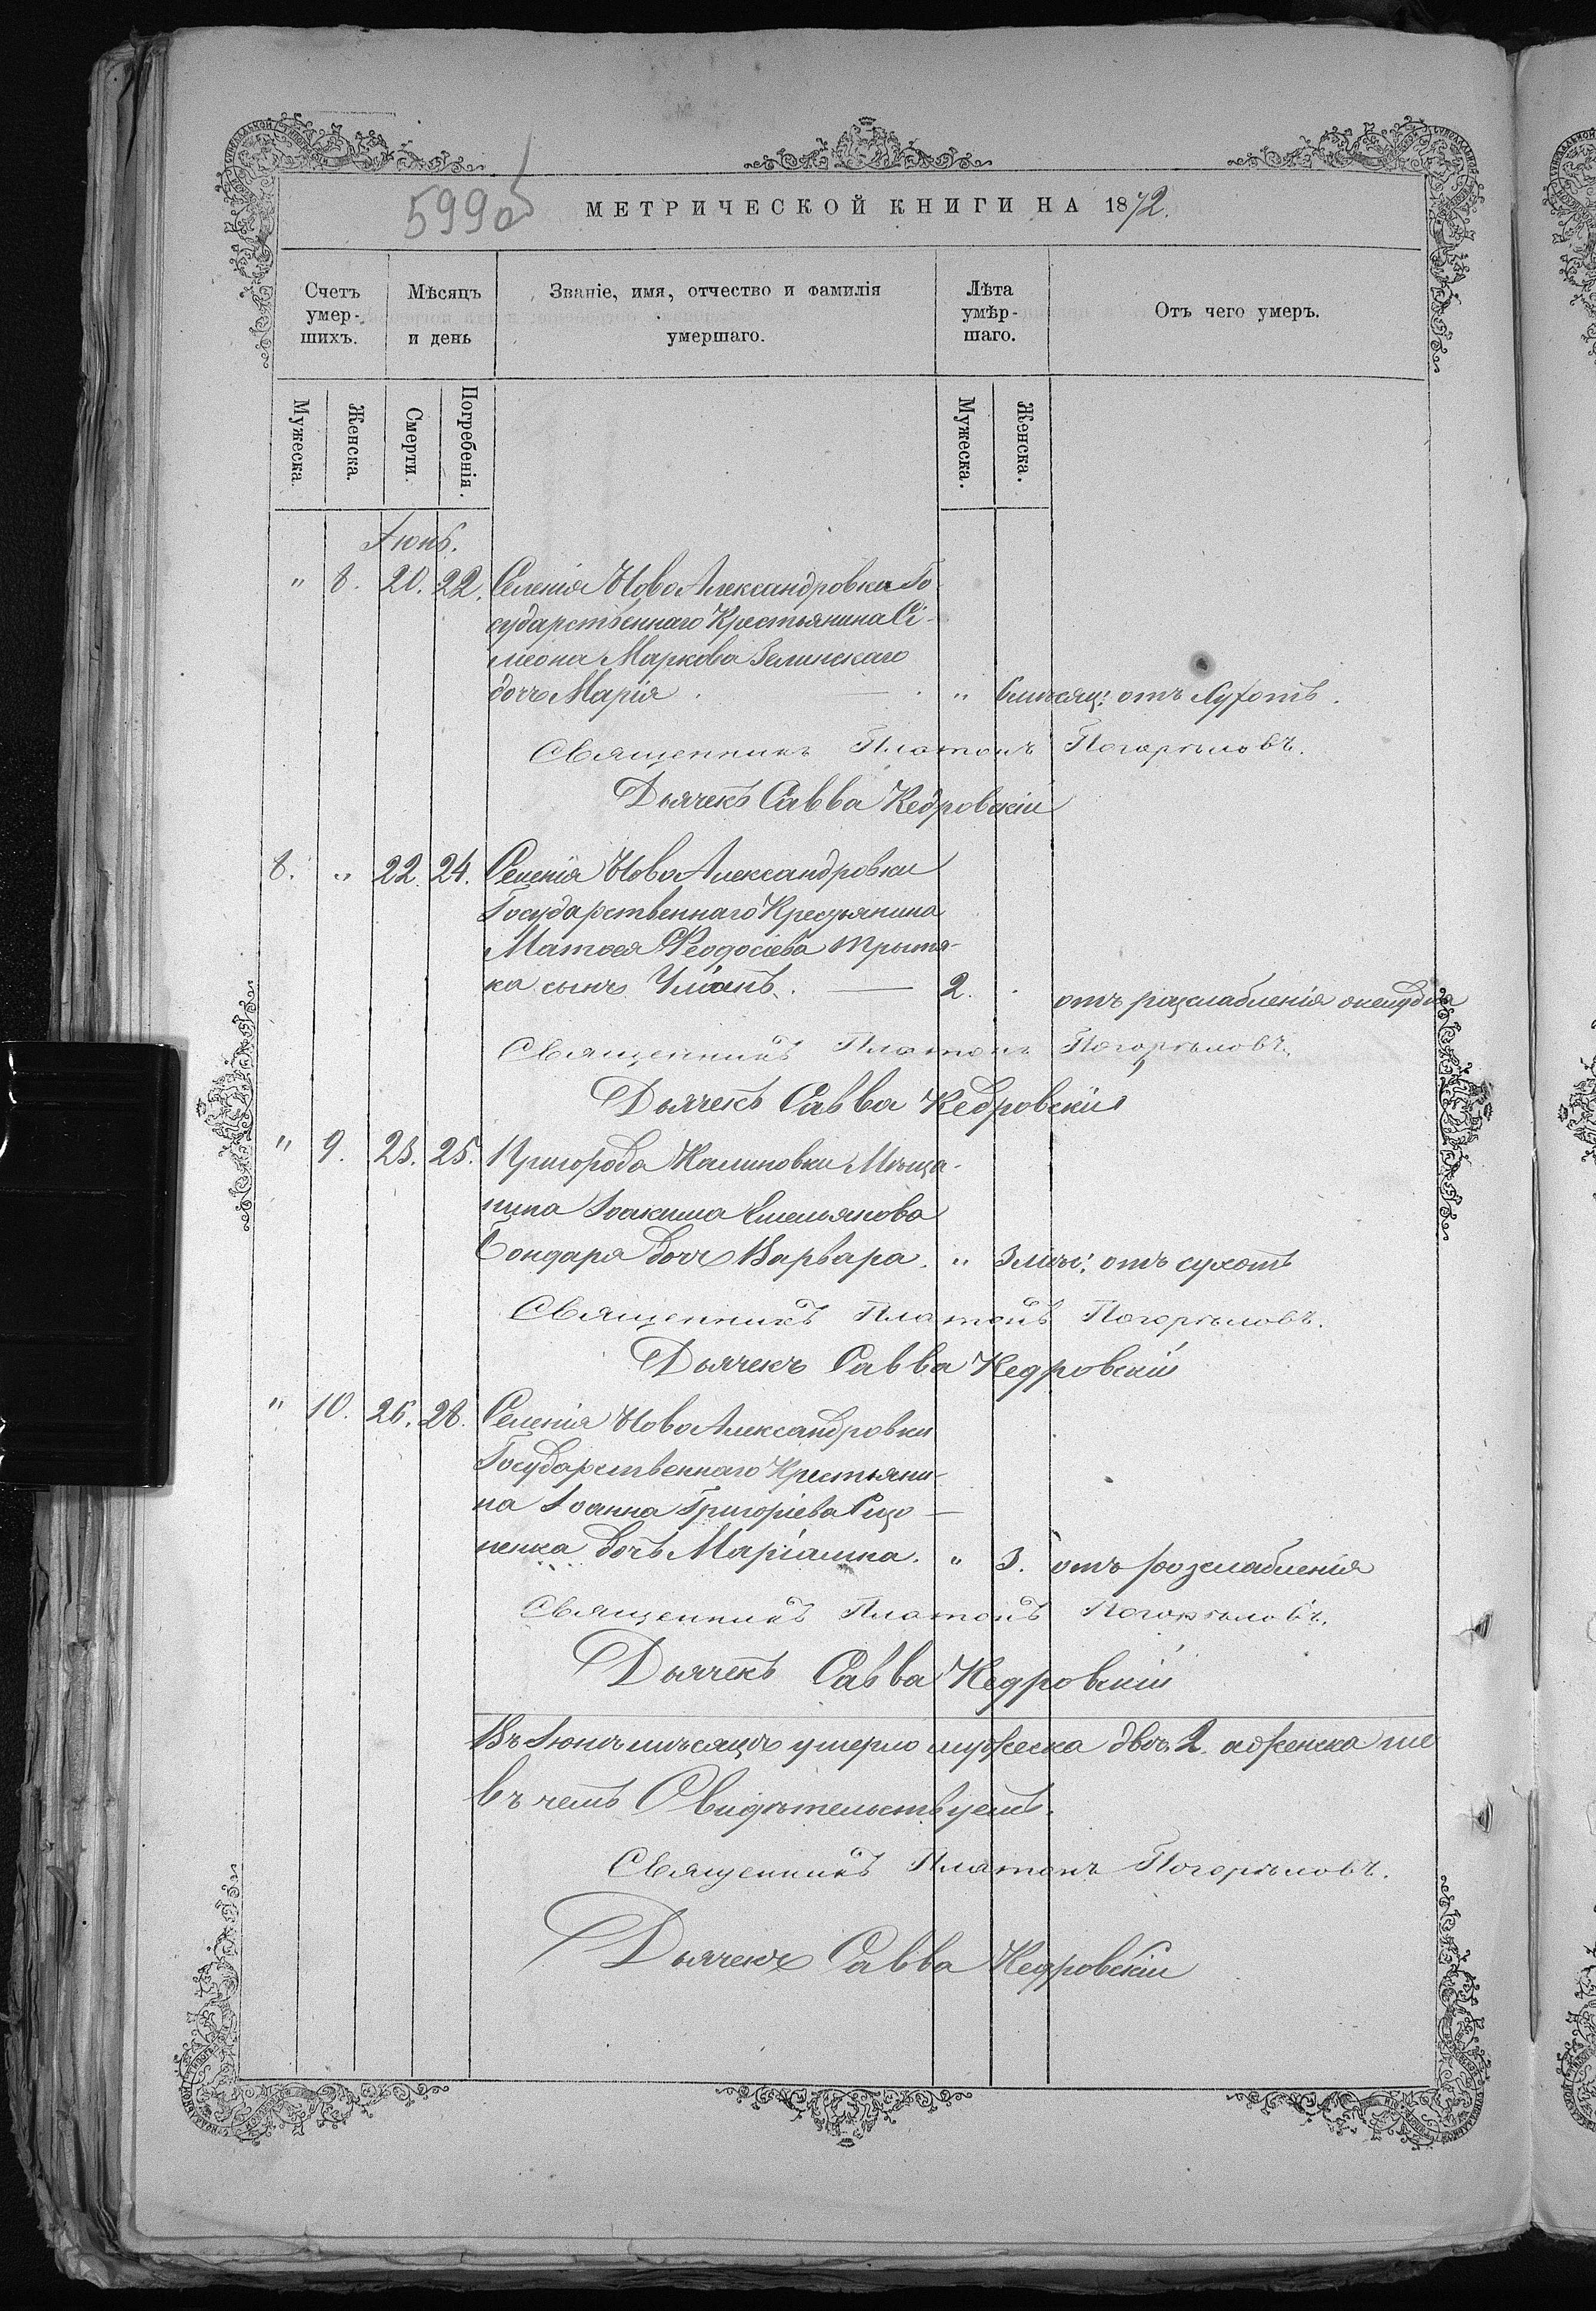 599об
МЕТРИЧЕСКОЙ КНИГИ НА 1872.
Счетъ умер-шихъ.
Мѣсяцъ и день
Званіе, имя, отчество и фамилія умершаго.
Лѣта умѣр-шаго.
Отъ чего умеръ.
Мужеска
Женска.
Смерти.
Погребенія.
Мужеска.
Женска.
Іюнь.
" 8. 20. 22. Селенія НовоАлександровки Го
сударственнаго Крестьянина Сі-
меона Маркова Зелинскаго
дочь Марія. — " 6 мѣсяц: отъ сухотъ.
Священникъ Платонъ Погорѣловъ.
Дьячекъ Савва Кедровскій
8. " 22. 24. Селенія НовоАлександровки
Государственнаго Крестьянина
Матѳея Ѳеодосіева
ка сынъ — 2. отъ разслабленія
Священникъ Платонъ Погорѣловъ.
Дьячекъ Савва Кедровскій
" 9. 23. 25. Пригорода Калиновки Мѣща-
нина Іоакима Емельянова
Бондаря дочь Варвара. " 3 мѣс: отъ сухотъ
Священникъ Платонъ Погорѣловъ.
Дьячекъ Савва Кедровскій
" 10. 26. 28. Селенія НовоАлександровки
Государственнаго Крестьяни-
на Іоанна Григоріева
ненка дочь Маріамна. " 3. отъ розслабленія
Священникъ Платонъ Погорѣловъ.
Дьячекъ Савва Кедровскій
Въ Іюнѣ мѣсяцѣ умерло мужеска двое 2. а женска
въ чемъ Свидѣтельствуемъ.
Священникъ Платонъ Погорѣловъ.
Дьячекъ Савва Кедровскій